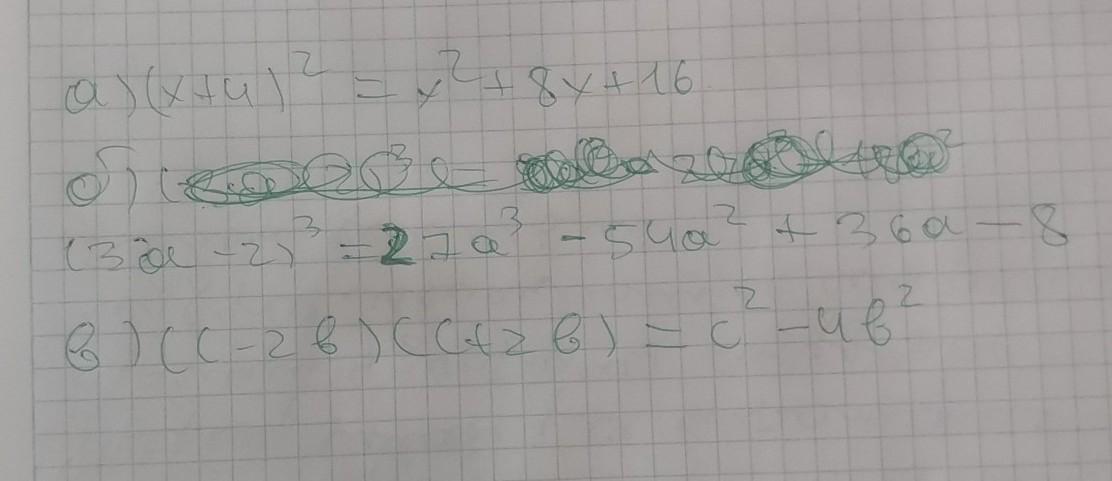 а) (x+4)² = x² + 8x + 16
б) (
(3a - 2)³ = 27a³ - 54a² + 36a - 8
в) (c - 2b)(c + 2b) = c² - 4b²